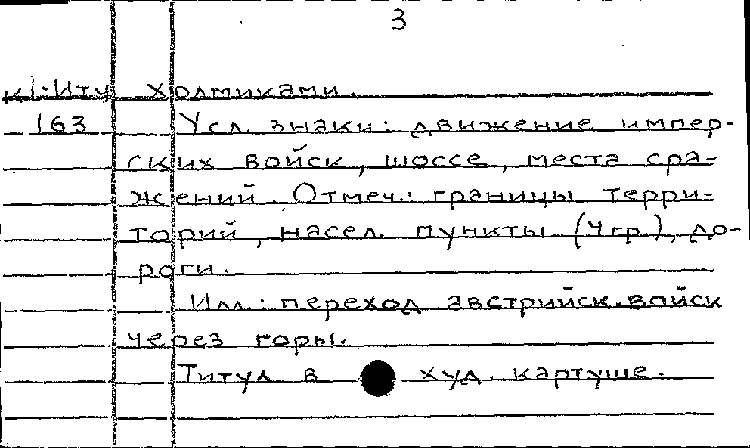 3
К1:Иту холмиками.
163 Усл. знаки: движение импер-
ских войск, шоссе, места сра-
жений. Отмеч.: границы терри-
торий, насел. пункты (4гр.), до-
роги.
Илл.: переход австрийск. войск
через горы.
Титул в худ. картуше.